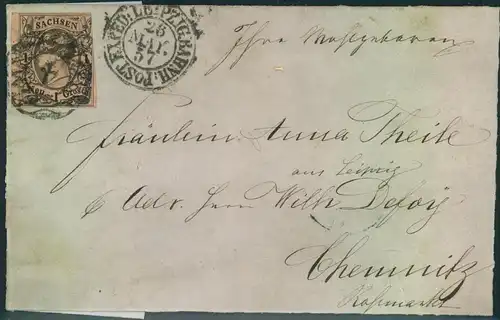 SACHSEN
Neu- 1 Grosch.
POST EXPED: LEIPZIG. BAHNH.
26
MAI.
57
Ihro Wohlgeboren
Fräulein Anna Theile
aus Leipzig
Adr. Herrn Wilh Defoÿ
Chemnitz
Roßmarkt